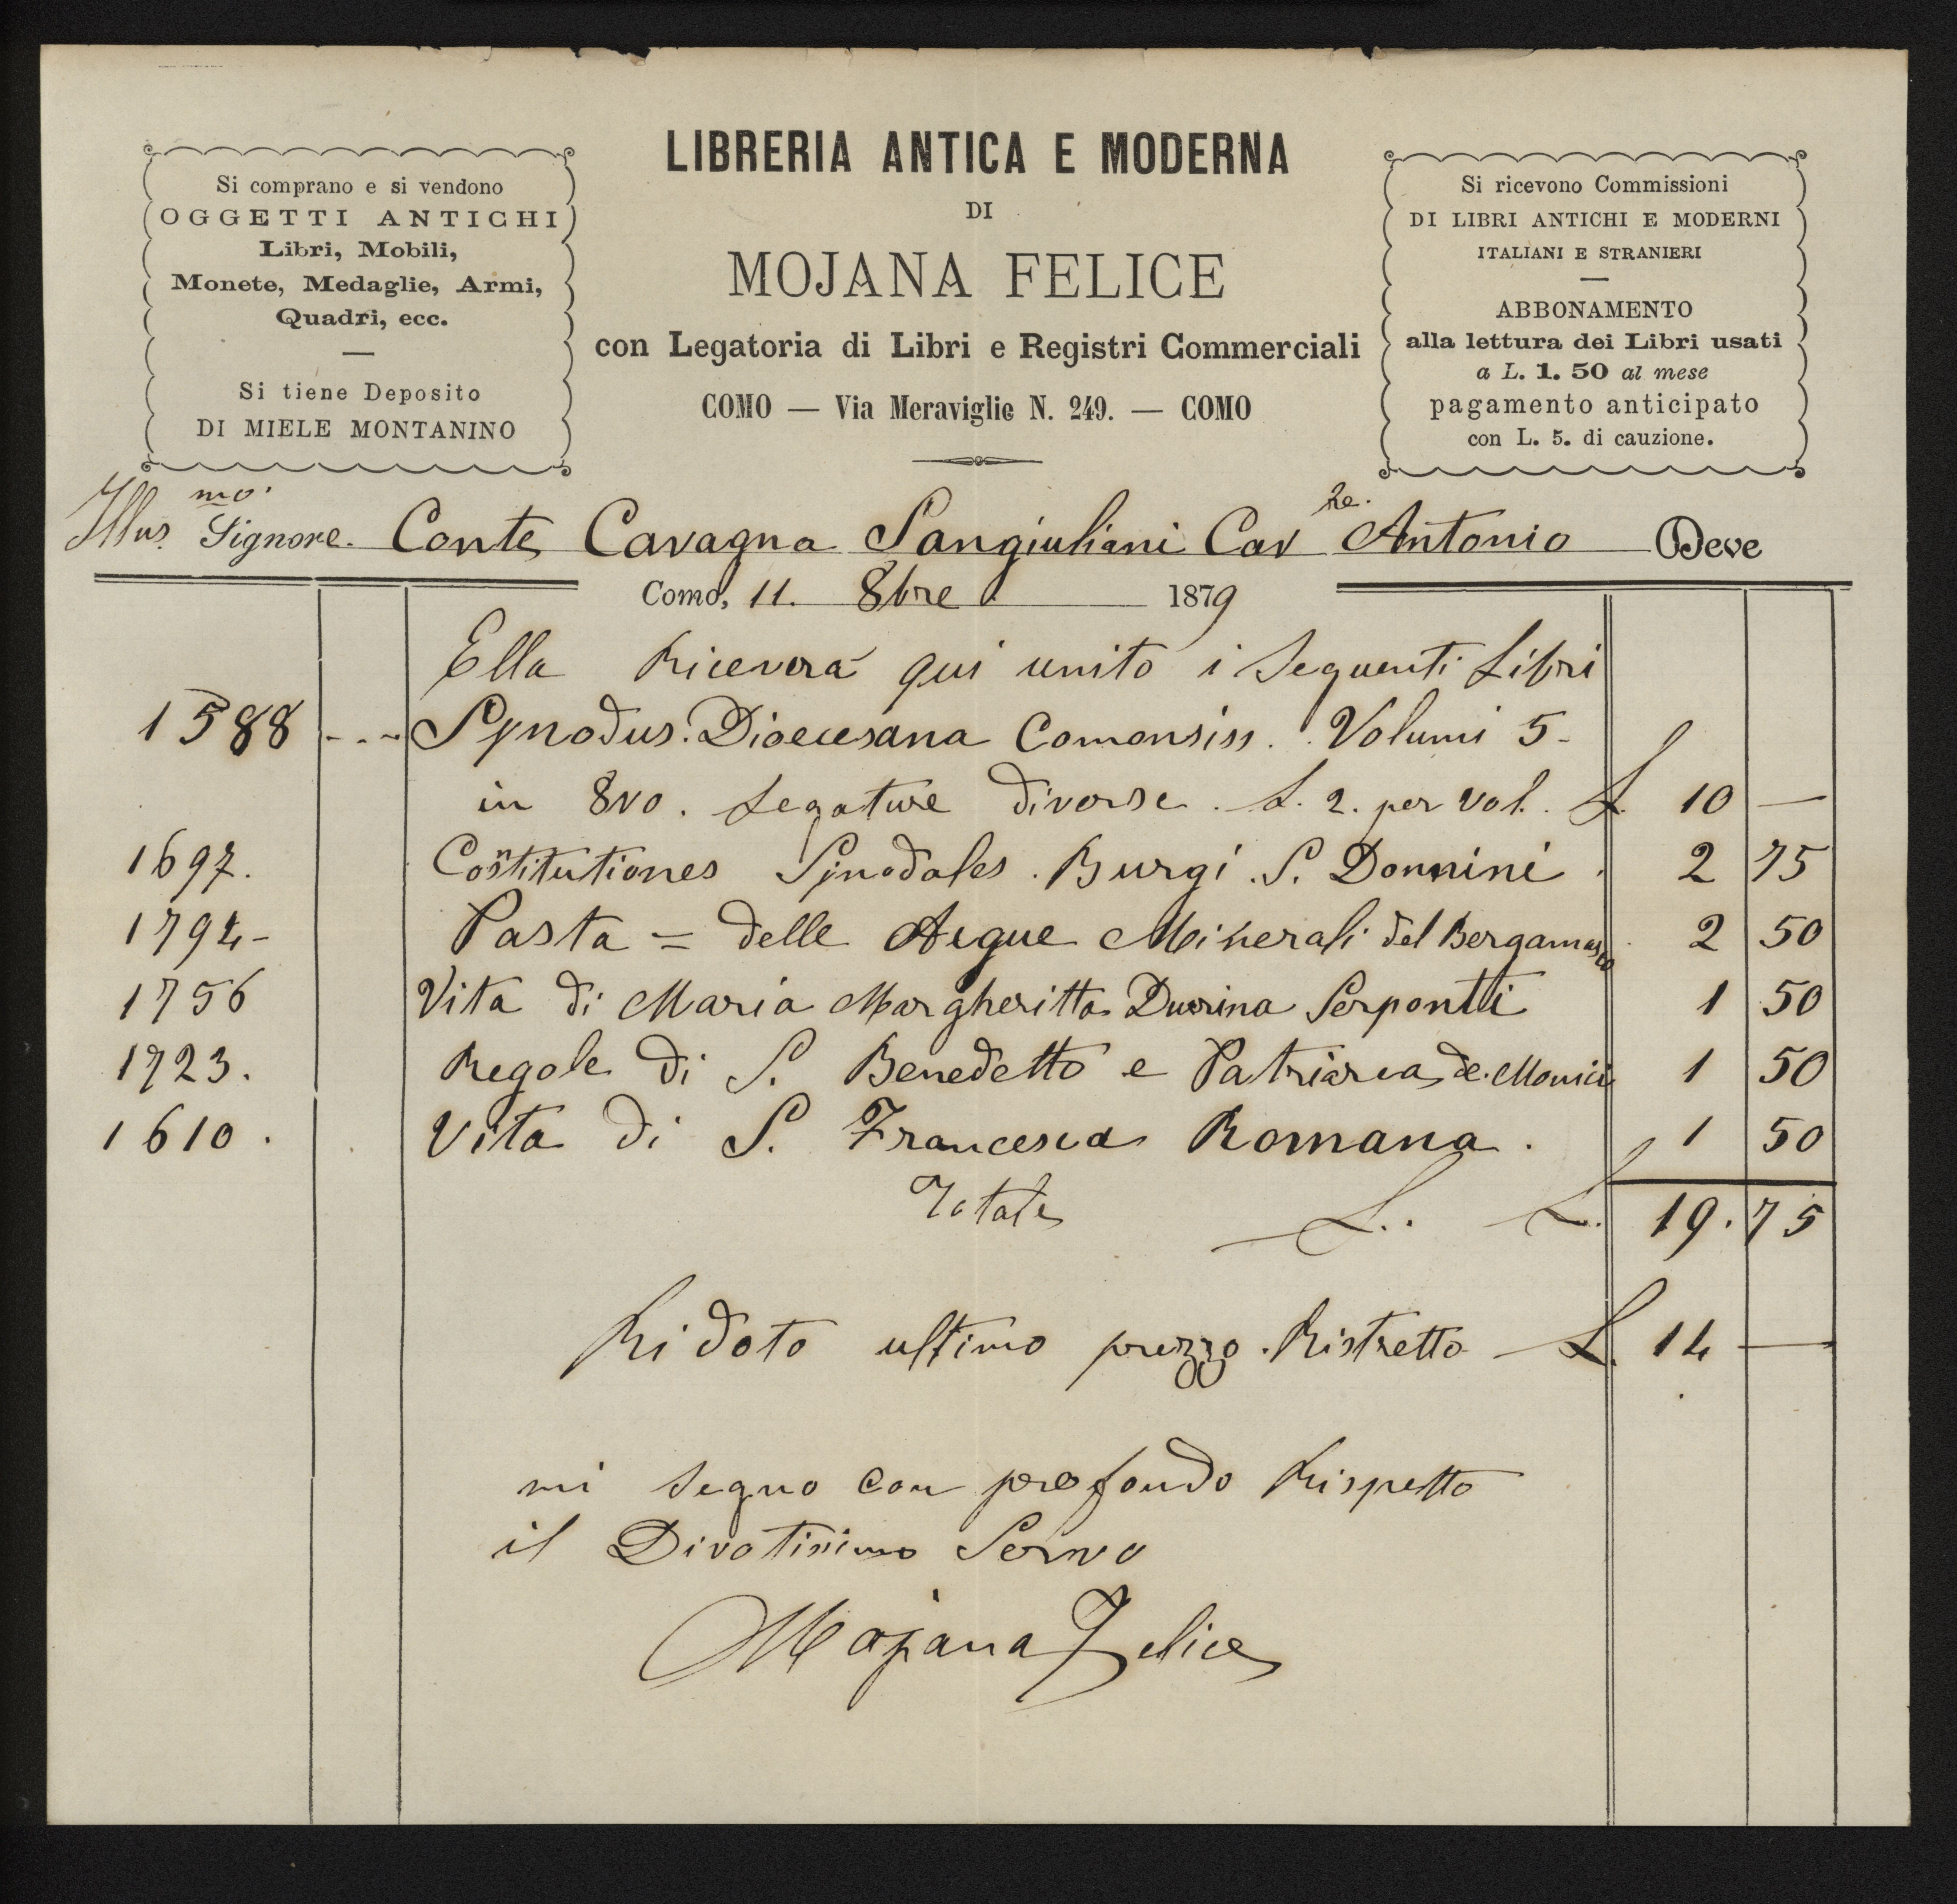 Si comprano e si vendono
OGGETTI ANTICHI
Libri, Mobili,
Monete, Medaglie, Armi,
Quadri, ecc.
Si tiene Deposito
DI MIELE MONTANINO
LIBRERIA ANTICA E MODERNA
DI
MOJANA FELICE
con Legatoria di Libri e Registri Commerciali
COMO — Via Meraviglie N. 249. — COMO
Si ricevono Commissioni
DI LIBRI ANTICHI E MODERNI
ITALIANI E STRANIERI
ABBONAMENTO
alla lettura dei Libri usati
a L. 1. 50 al mese
pagamento anticipato
con L. 5. di cauzione.
Illus.mo Signore. Conte Cavagna Sangiuliani Cav.re Antonio Deve
Como, 11. 8bre 1879
Ella Riceverà qui unito i Seguenti Libri
1588 --- Synodus. Dioecesana Comensiss. Volumi 5-
in 8vo. Legature diverse. L. 2. per vol. L. 10 —
1697. Costitutiones Sinodales. Burgi. S. Donnini. 2 75
1794- Pasta = delle Acque Minerali del Bergamasco 2 50
1756 Vita di Maria Margheritta Durina Serponti 1 50
1723. Regole di S. Benedetto e Patriarca de. Monici 1 50
1610. Vita di S. Francesca Romana. 1 50
Totale L.. L. 19.75
Ridoto ultimo prezzo. Ristretto L. 14 —
mi segno con profondo Rispetto
il Divotisimo Servo
Mojana Felice